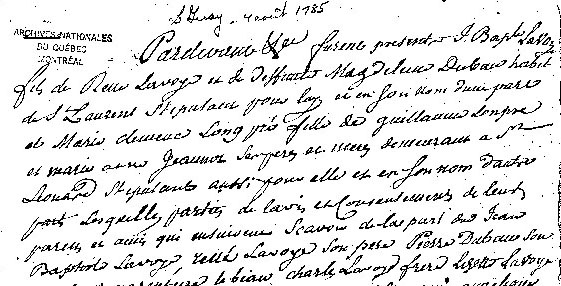 4 août 1785
ARCHIVES NATIONALES
DU QUÉBEC
MONTRÉAL
Pardevant &c furent présent J. Bapte Lavoye
fils de Rene Lavoye et de deffunte Magdeleine Dubau habit
de St Laurent Stipulant pour luy et en son nom d'une part
et Marie clemence Longpré fille de guillaume Longpre
et marie anne Jeannot ses pere et mere demeurant a St
Leonard Stipulante aussi pour elle et en son nom d'autre
part Lesquelles parties de lavis et Consentement de leurs
parens et amis qui ensuivent Scavoir de la part du Jean
Baptiste Lavoye, René Lavoye son pere Pierre Dubau son
charle Lavoye frere Lavoye